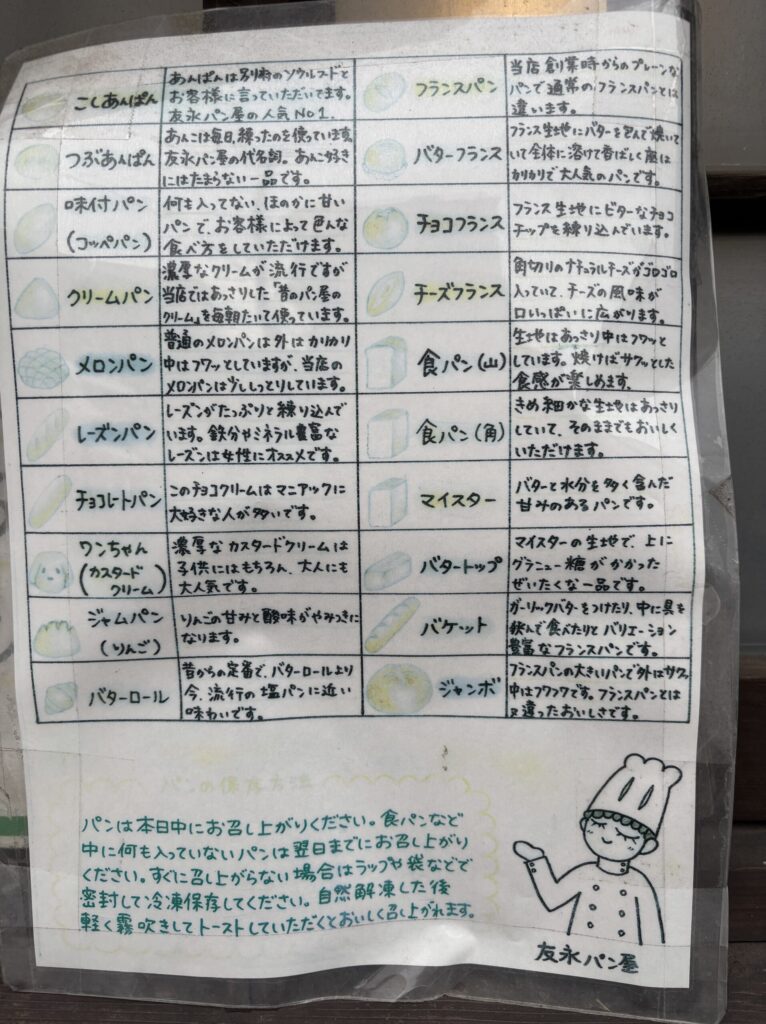 こしあんぱん
あんぱんは別府のソウルフードと
お客様に言っていただいてます。
友永パン屋の人気No1.
つぶあんぱん
あんこは毎日、練ったのを使っています。
友永パン屋の代名詞。あんこ好き
にはたまらない一品です。
味付パン
(コッペパン)
何も入ってない、ほのかに甘い
パンで、お客様によって色んな
食べ方をしていただけます。
クリームパン
濃厚なクリームが流行ですが
当店ではあっさりした「昔のパン屋の
クリーム」を毎朝たいて使っています。
メロンパン
普通のメロンパンは外はかりかり
中はフワッとしていますが、当店の
メロンパンは少ししっとりしています。
レーズンパン
レーズンがたっぷりと練り込んで
います。鉄分やミネラル豊富な
レーズンは女性にオススメです。
チョコレートパン
このチョコクリームはマニアックに
大好きな人が多いです。
ワンちゃん
(カスタード
クリーム)
濃厚なカスタードクリームは
子供にはもちろん、大人にも
大人気です。
ジャムパン
(りんご)
りんごの甘みと酸味がやみつきに
なります。
バターロール
昔からの定番で、バターロールより
今、流行の塩パンに近い
味わいです。
フランスパン
当店創業時からのプレーンな
パンで通常のフランスパンとは
違います。
バターフランス
フランス生地にバターを包んで焼いて
いて全体に溶けて香ばしく底は
かりかりで大人気のパンです。
チョコフランス
フランス生地にビターなチョコ
チップを練り込んでいます。
チーズフランス
角切りのナチュラルチーズがゴロゴロ
入っていて、チーズの風味が
口いっぱいに広がります。
食パン(山)
生地はあっさり中はフワッと
しています。焼けばサクッとした
食感が楽しめます。
食パン(角)
きめ細かな生地はあっさり
していて、そのままでもおいしく
いただけます。
マイスター
バターと水分を多く含んだ
甘みのあるパンです。
バタートップ
マイスターの生地で、上に
グラニュー糖がかかった
ぜいたくな一品です。
バケット
ガーリックバターをつけたり、中に具を
挟んで食べたりとバリエーション
豊富なフランスパンです。
ジャンボ
フランスパンの大きいパンで外はサクッ
中はフワフワです。フランスパンとは
又違ったおいしさです。
パンの保存方法
パンは本日中にお召し上がりください。食パンなど
中に何も入っていないパンは翌日までにお召し上がり
ください。すぐに召し上がらない場合はラップや袋などで
密封して冷凍保存してください。自然解凍した後
軽く霧吹きしてトーストしていただくとおいしく召し上がれます。
友永パン屋